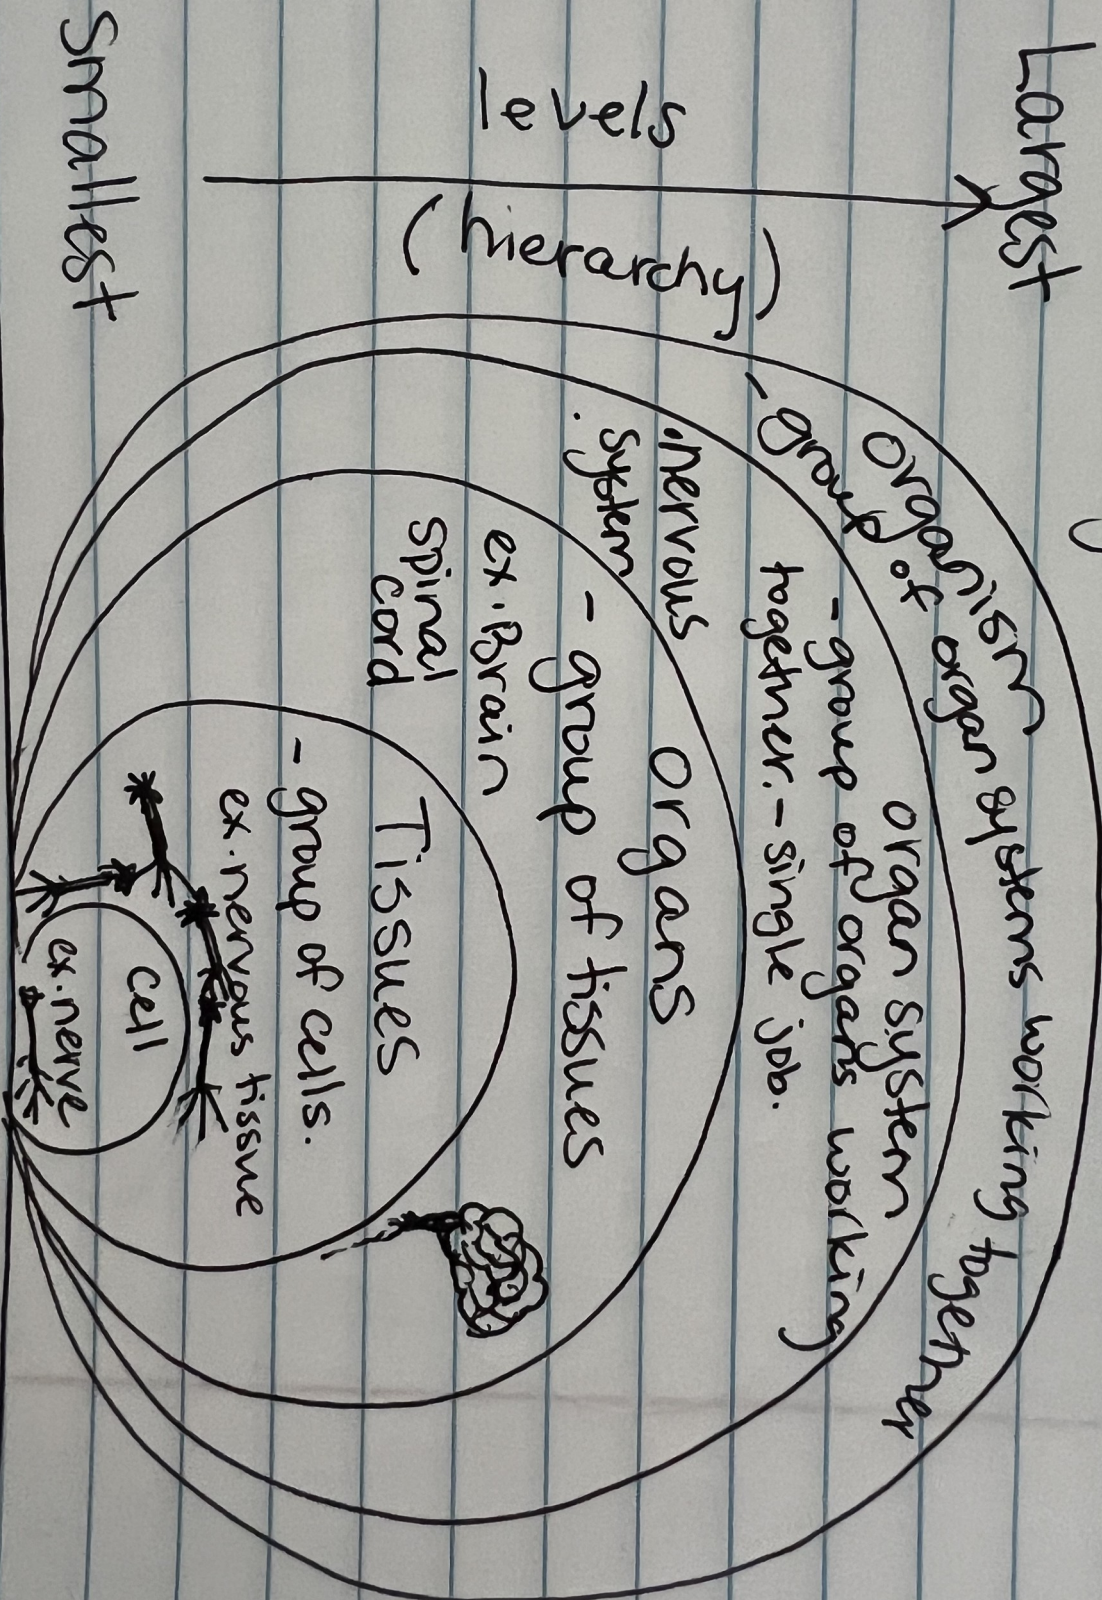 Largest
levels
(hierarchy)
Smallest
organism
- group of organ systems working together
organ system
- group of organs working
together. - single job.
• nervous
system
Organs
- group of tissues
ex. Brain
spinal
cord
Tissues
- group of cells.
ex. nervous tissue
cell
ex. nerve